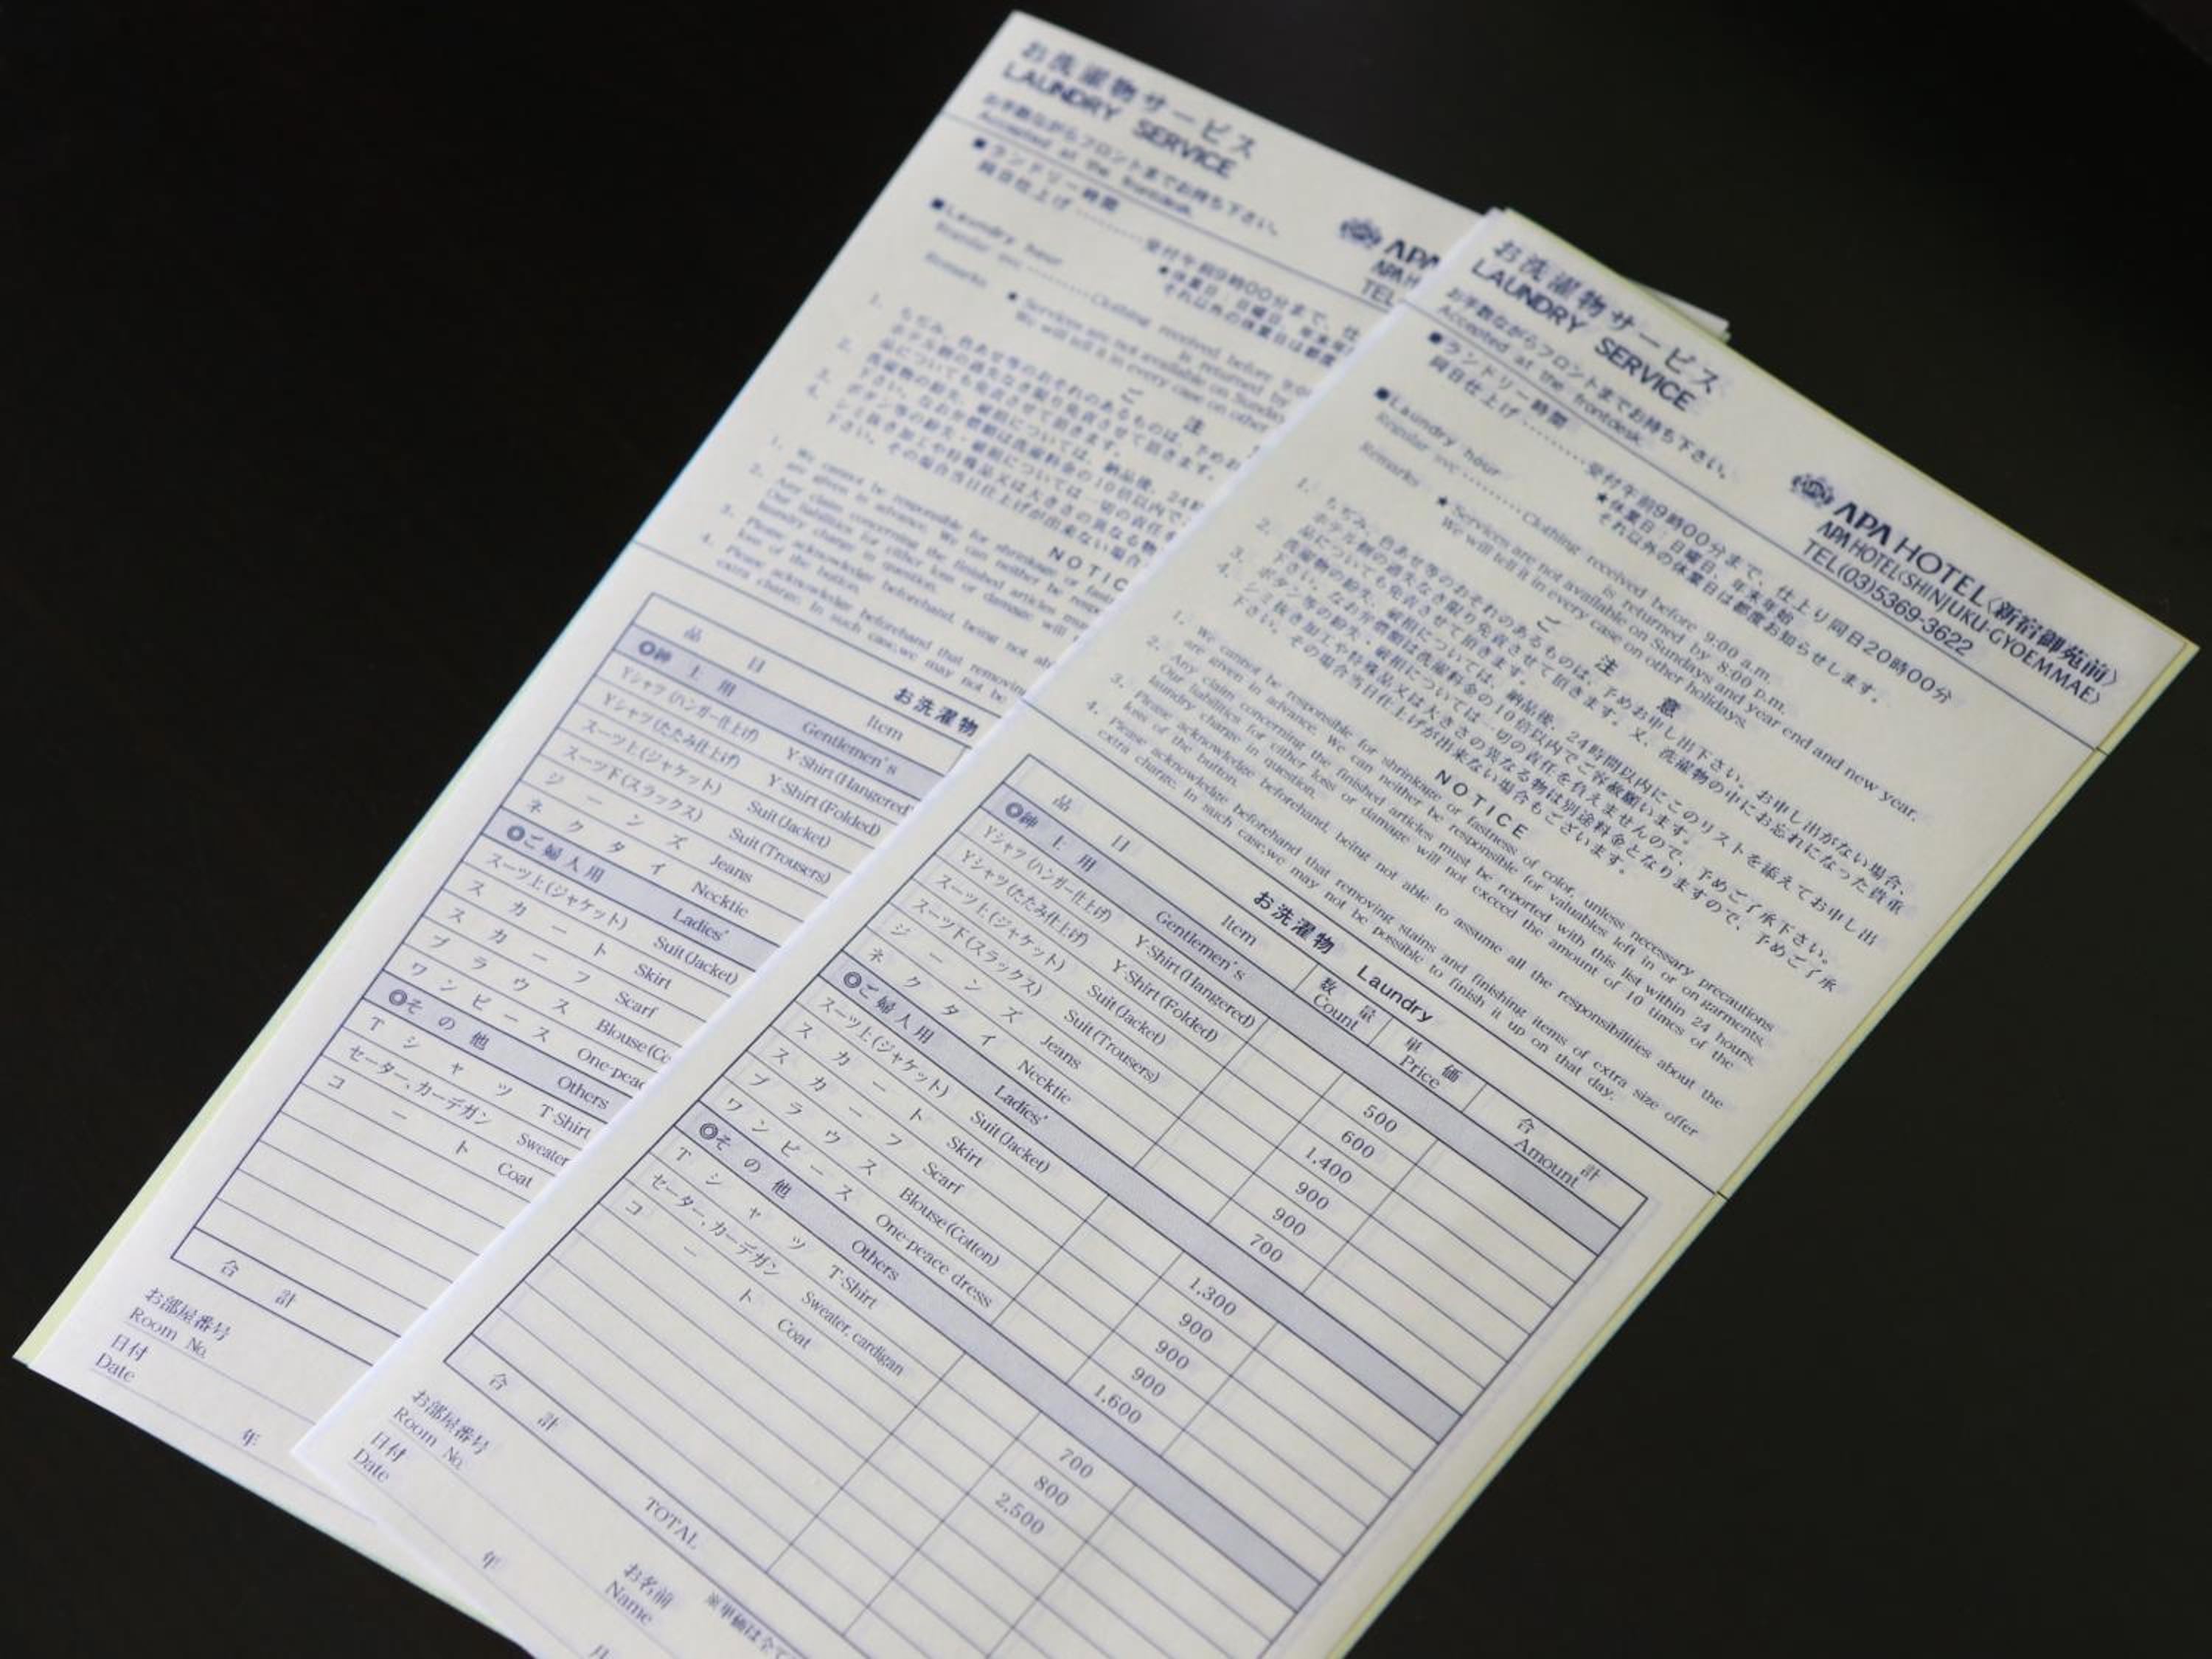 お洗濯物サービス
LAUNDRY SERVICE
お手数ながらフロントまでお持ち下さい。
Accepted at the frontdesk.
■ランドリー時間
同日仕上げ
■Laundry hour
Regular svc
Remarks
APA
APA H
TEL
1.
2.
3.
4.
NOTIC
お洗濯物
品 目 Item
◎紳士用 Gentlemen's
Yシャツ(ハンガー仕上げ) Y-Shirt(Hangered
Yシャツ(たたみ仕上げ) Y-Shirt(Folded)
スーツ上(ジャケット) Suit(Jacket)
スーツ下(スラックス) Suit(Trousers)
ジーンズ Jeans
ネクタイ Necktie
◎ご婦人用 Ladies'
スーツ上(ジャケット) Suit(Jacket)
スカート Skirt
スカーフ Scarf
ブラウス Blouse(Co
ワンピース One-peac
◎その他 Others
Tシャツ T-Shirt
セーター、カーデガン Sweater
コート Coat
合 計
お部屋番号
Room No.
日付
Date
年
お洗濯物サービス
LAUNDRY SERVICE
お手数ながらフロントまでお持ち下さい。
Accepted at the frontdesk.
APA HOTEL〈新宿御苑前〉
APA HOTEL〈SHINJUKU-GYOEMMAE〉
TEL(03)5369-3622
■ランドリー時間
同日仕上げ………受付午前9時00分まで、仕上り同日20時00分
★休業日：日曜日、年末年始
それ以外の休業日は都度お知らせします。
■Laundry hour
Regular svc…………Clothing received before 9:00 a.m.
is returned by 8:00 p.m.
Remarks ★Services are not available on Sundays and year end and new year.
We will tell it in every case on other holidays.
ご 注 意
1. ちぢみ、色あせ等のおそれのあるものは、予めお申し出下さい。お申し出がない場合、
ホテル側の過失なき限り免責させて頂きます。又、洗濯物の中にお忘れになった貴重
品についても免責させて頂きます。
2. 洗濯物の紛失、破損については、納品後、24時間以内にこのリストを添えてお申し出
下さい。なお弁償額は洗濯料金の10倍以内でご容赦願います。
3. ボタン等の紛失・破損については一切の責任を負えませんので、予めご了承下さい。
4. シミ抜き加工や特殊品又は大きさの異なる物は別途料金となりますので、予めご了承
下さい。その場合当日仕上げが出来ない場合もございます。
NOTICE
1. We cannot be responsible for shrinkage or fastness of color, unless necessary precautions
are given in advance. We can neither be responsible for valuables left in or on garments.
2. Any claim concerning the finished articles must be reported with this list within 24 hours.
Our liabilities for either loss or damage will not exceed the amount of 10 times of the
laundry charge in question.
3. Please acknowledge beforehand, being not able to assume all the responsibilities about the
loss of the button.
4. Please acknowledge beforehand that removing stains and finishing items of extra size offer
extra charge. In such case,we may not be possible to finish it up on that day.
お洗濯物 Laundry
品 目 Item 数量 Count 単価 Price 合計 Amount
◎紳士用 Gentlemen's
Yシャツ(ハンガー仕上げ) Y-Shirt(Hangered) 500
Yシャツ(たたみ仕上げ) Y-Shirt(Folded) 600
スーツ上(ジャケット) Suit(Jacket) 1,400
スーツ下(スラックス) Suit(Trousers) 900
ジーンズ Jeans 900
ネクタイ Necktie 700
◎ご婦人用 Ladies'
スーツ上(ジャケット) Suit(Jacket) 1,300
スカート Skirt 900
スカーフ Scarf 900
ブラウス Blouse(Cotton) 900
ワンピース One-peace dress 1,600
◎その他 Others
Tシャツ T-Shirt 700
セーター、カーデガン Sweater, cardigan 800
コート Coat 2,500
合 計 TOTAL
※単価は全て
お部屋番号
Room No.
お名前
Name
日付
Date
年 月